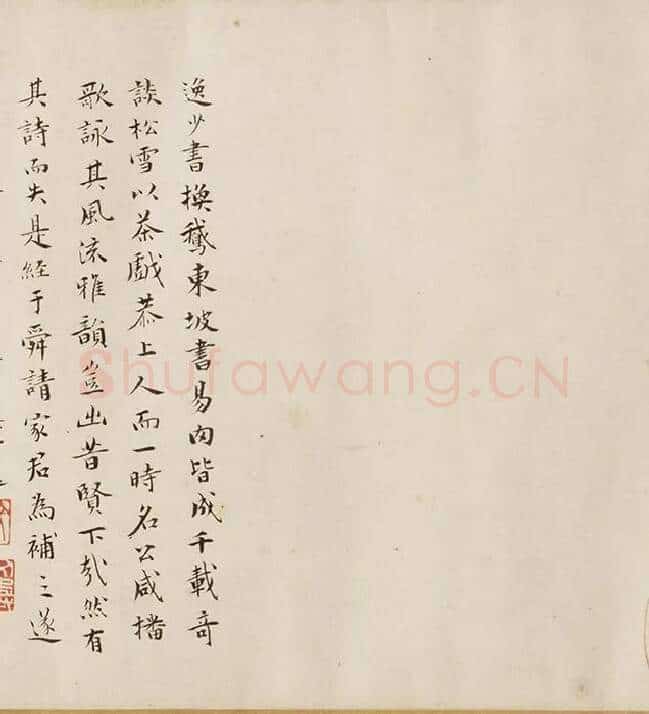 逸少書換鵝東坡書易肉皆成千載奇
談松雪以茶戲恭上人而一時名公咸播
歌詠其風流雅韻豈出昔賢下哉然有
其詩而失是經于舜請家君為補之遂
Shufawang.CN